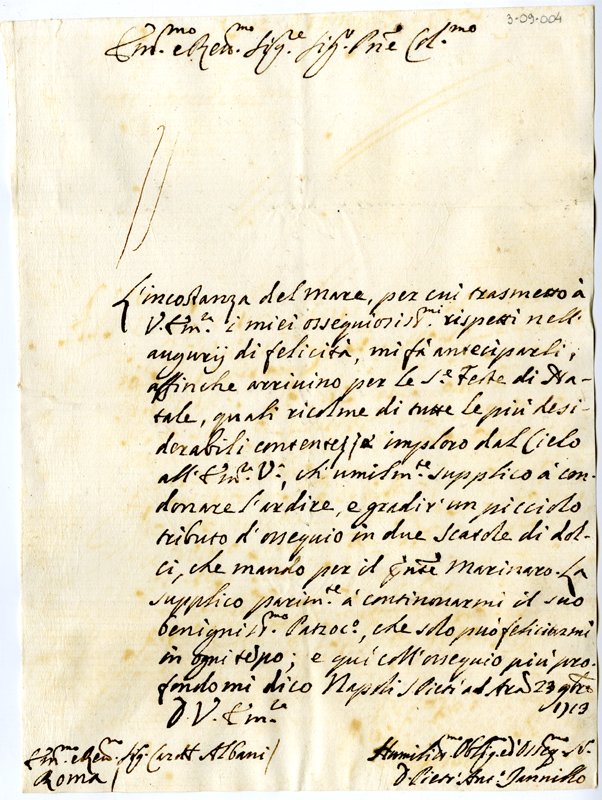 3-09-004
Em.mo e Reu.mo Sig.re Sig.r P.rne Col.mo
L'incostanza del Mare, per cui trasmetto à
V. Em.za i miei ossequiosiss.mi rispetti nell'
augurij di felicità, mi fà anteciparli,
affinche arriuino per le S.e Feste di Na-
tale, quali ricolme di tutte le più desi-
derabili contentezze imploro dal Cielo
all' Em.za V.a, ch' umilm.te supplico à con-
donare l'ardire, e gradir' un picciolo
tributo d'ossequio in due Scatole di dol-
ci, che mando per il p̃nte Marinaro. La
supplico parim.te à continouarmi il suo
benigniss.mo Patroc.o, che solo può felicitarmi
in ogni tẽpo; e quì coll'ossequio più pro-
fondo mi dico Napoli 23 9bre
1713
D. V. Em.za
Em.mo e Reu.mo Sig. Card. Albani
Roma
Humiliss.mo Oblig.
D. Pietr' Ant. Jannillo